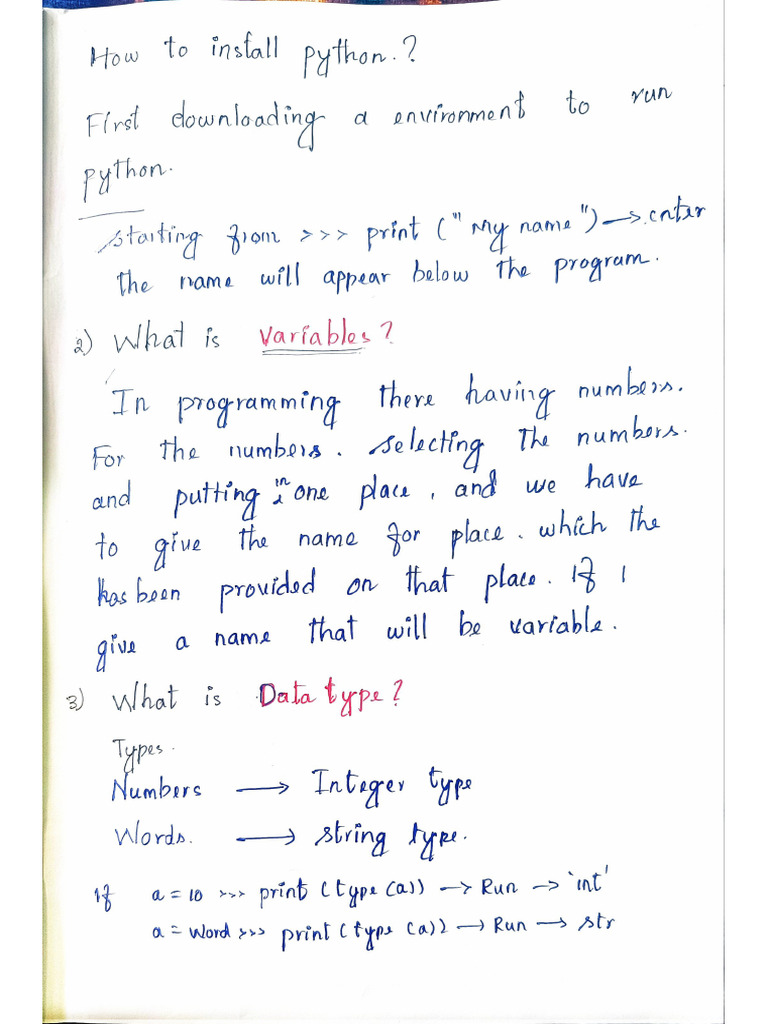 How to install python.?
First downloading a environment to run
python.
starting from >>> print ("My name") → enter
the name will appear below the program.
2) What is Variables?
In programming there having numbers.
For the numbers. selecting the numbers.
and putting in one place, and we have
to give the name for place. which the
has been provided on that place. If I
give a name that will be variable.
3) What is Data type?
Types.
Numbers → Integer type
Words. → string type.
If a = 10 >>> print (type (a)) → Run → 'int'
a = Word >>> print (type (a)) → Run → str